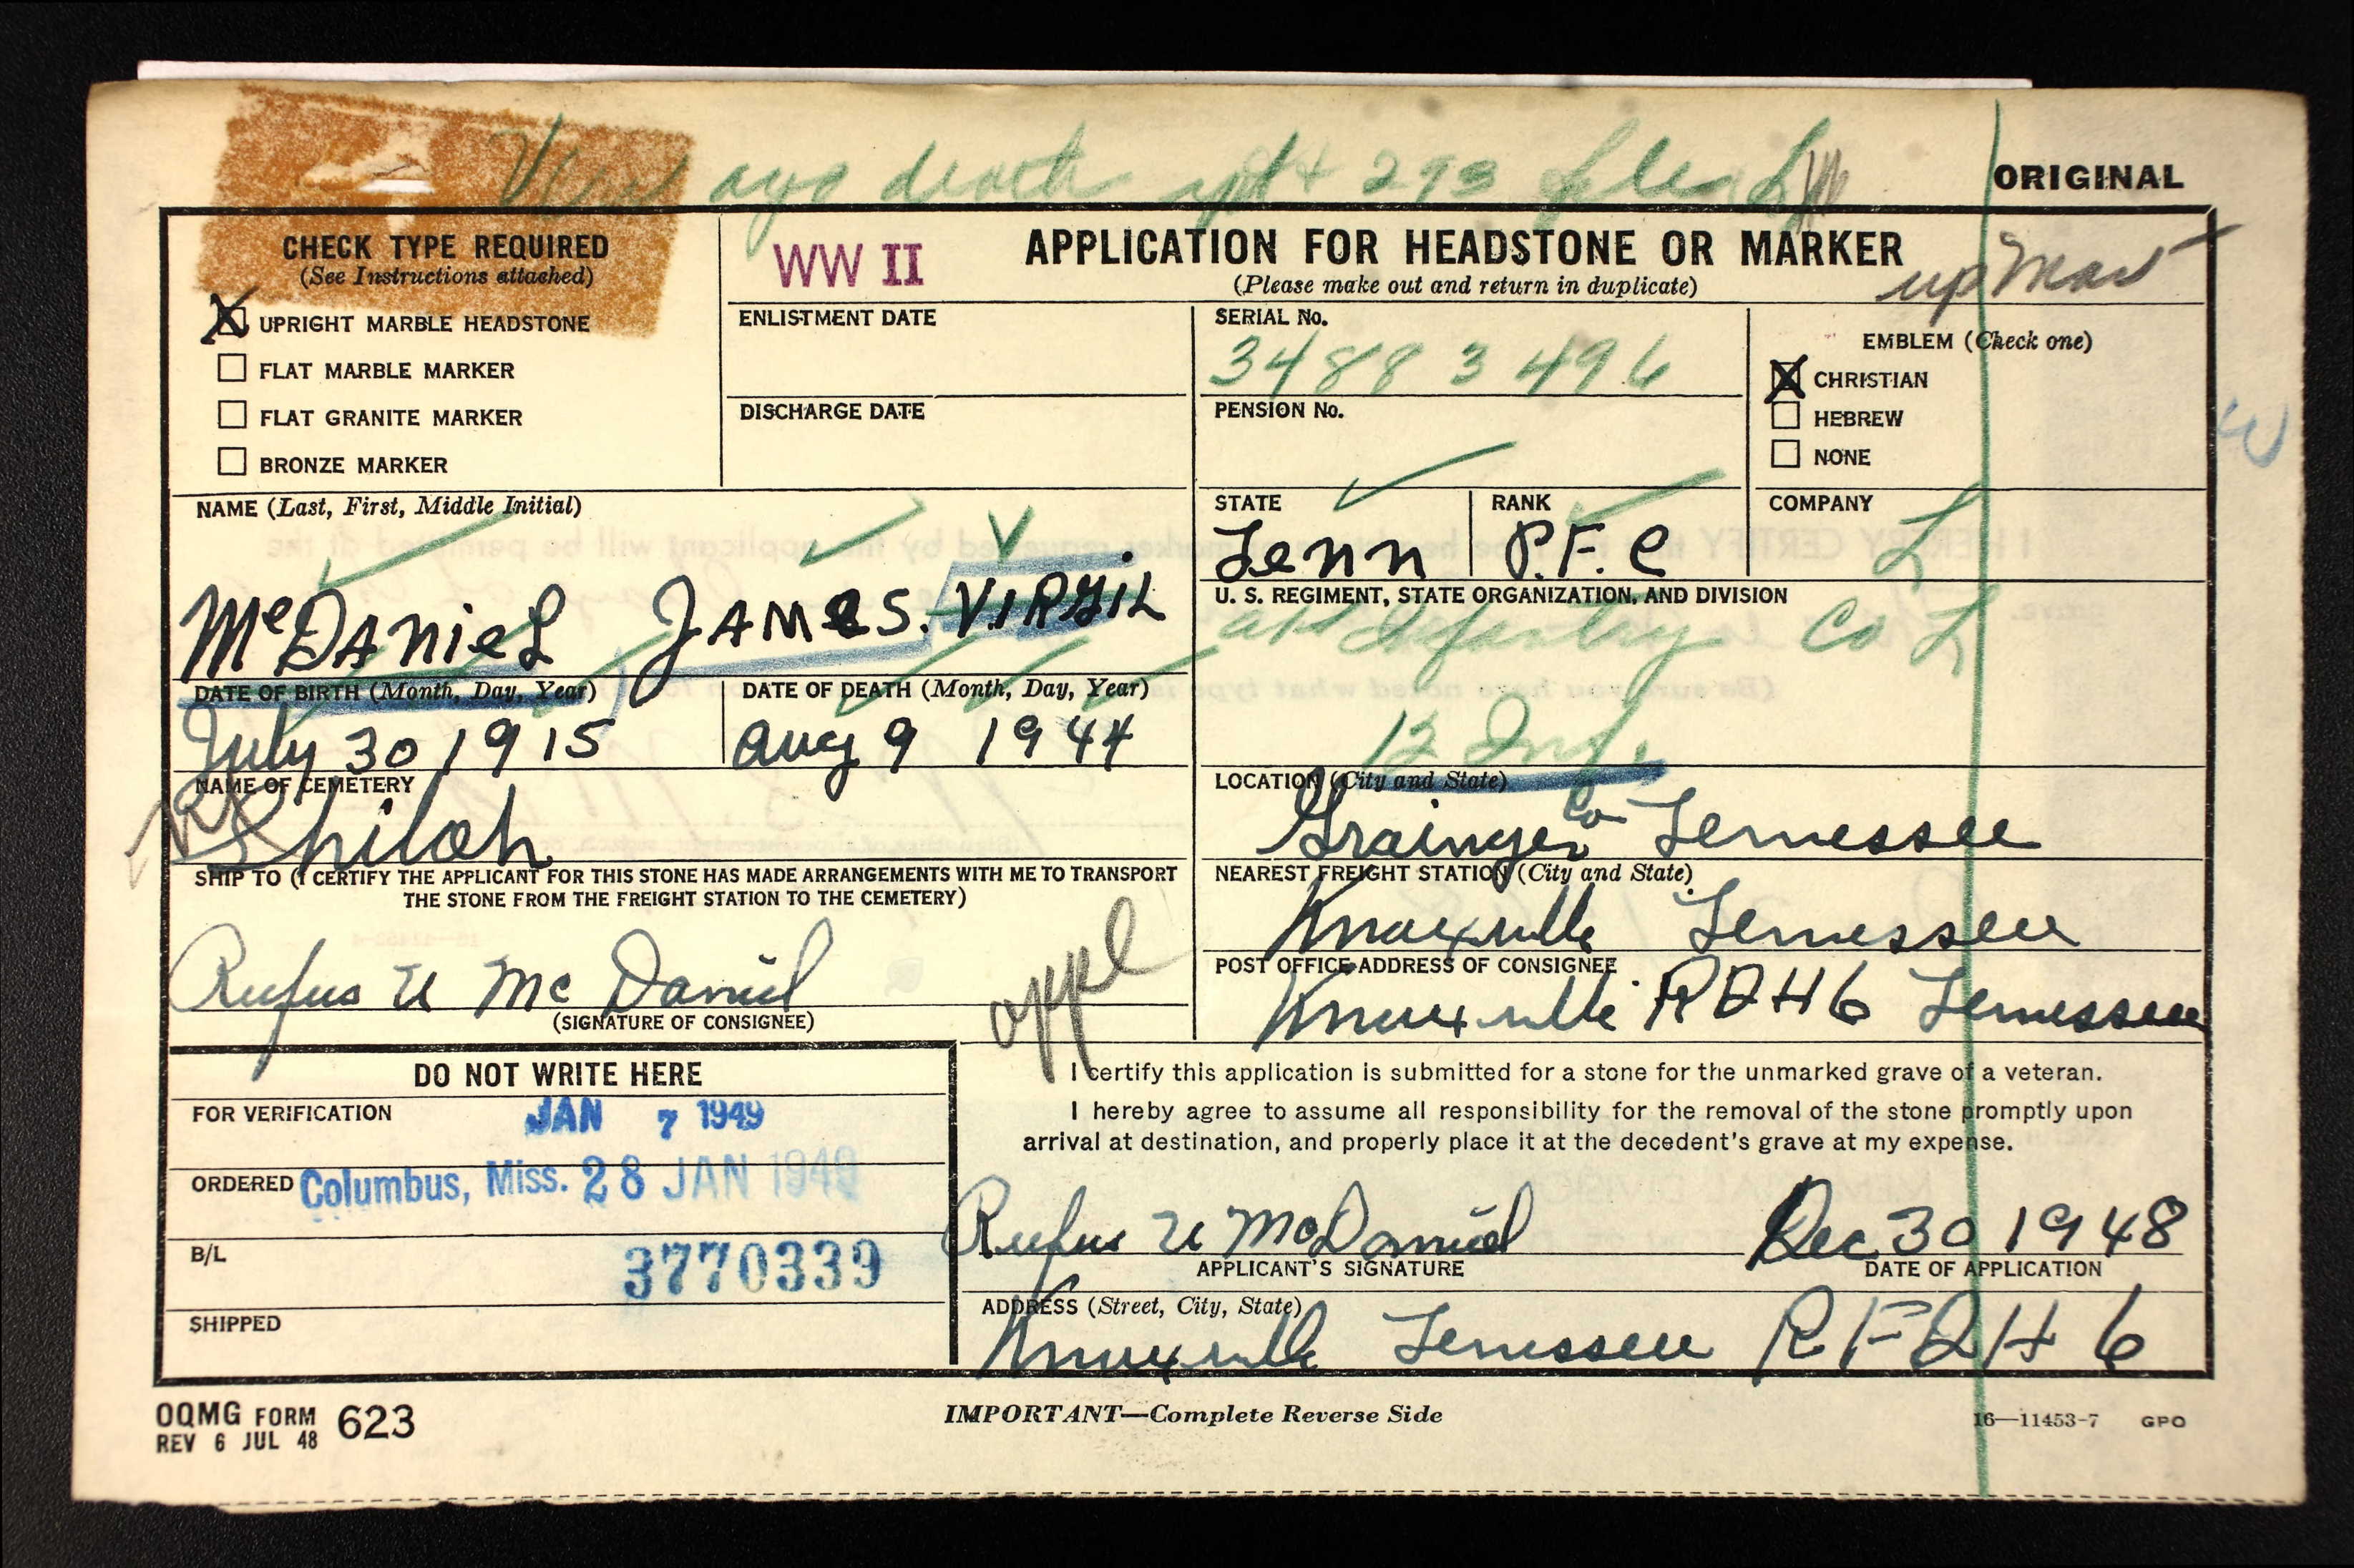 ago death 293
ORIGINAL
CHECK TYPE REQUIRED
(See Instructions attached)
X UPRIGHT MARBLE HEADSTONE
FLAT MARBLE MARKER
FLAT GRANITE MARKER
BRONZE MARKER
WW II
APPLICATION FOR HEADSTONE OR MARKER
(Please make out and return in duplicate)
up Mar
ENLISTMENT DATE
DISCHARGE DATE
SERIAL No.
34883496
PENSION No.
EMBLEM (Check one)
X CHRISTIAN
HEBREW
NONE
NAME (Last, First, Middle Initial)
McDANieL JAMeS. VIRGiL
STATE
Tenn
RANK
P.F.C
COMPANY
L
U. S. REGIMENT, STATE ORGANIZATION, AND DIVISION
Infantry Co L
12 Inf.
DATE OF BIRTH (Month, Day, Year)
July 30 1915
DATE OF DEATH (Month, Day, Year)
Aug 9 1944
NAME OF CEMETERY
Shiloh
LOCATION (City and State)
Grainger Co Tennessee
SHIP TO (I CERTIFY THE APPLICANT FOR THIS STONE HAS MADE ARRANGEMENTS WITH ME TO TRANSPORT
THE STONE FROM THE FREIGHT STATION TO THE CEMETERY)
Rufus U McDaniel
(SIGNATURE OF CONSIGNEE)
appl
NEAREST FREIGHT STATION (City and State)
Knoxville Tennessee
POST OFFICE ADDRESS OF CONSIGNEE
Knoxville RD#6 Tennessee
DO NOT WRITE HERE
FOR VERIFICATION JAN 7 1949
ORDERED Columbus, Miss. 28 JAN 1949
B/L 3770339
SHIPPED
I certify this application is submitted for a stone for the unmarked grave of a veteran.
I hereby agree to assume all responsibility for the removal of the stone promptly upon
arrival at destination, and properly place it at the decedent's grave at my expense.
Rufus U McDaniel
APPLICANT'S SIGNATURE
Dec 30 1948
DATE OF APPLICATION
ADDRESS (Street, City, State)
Knoxville Tennessee RFD# 6
OQMG FORM 623
REV 6 JUL 48
IMPORTANT—Complete Reverse Side
16—11453-7 GPO